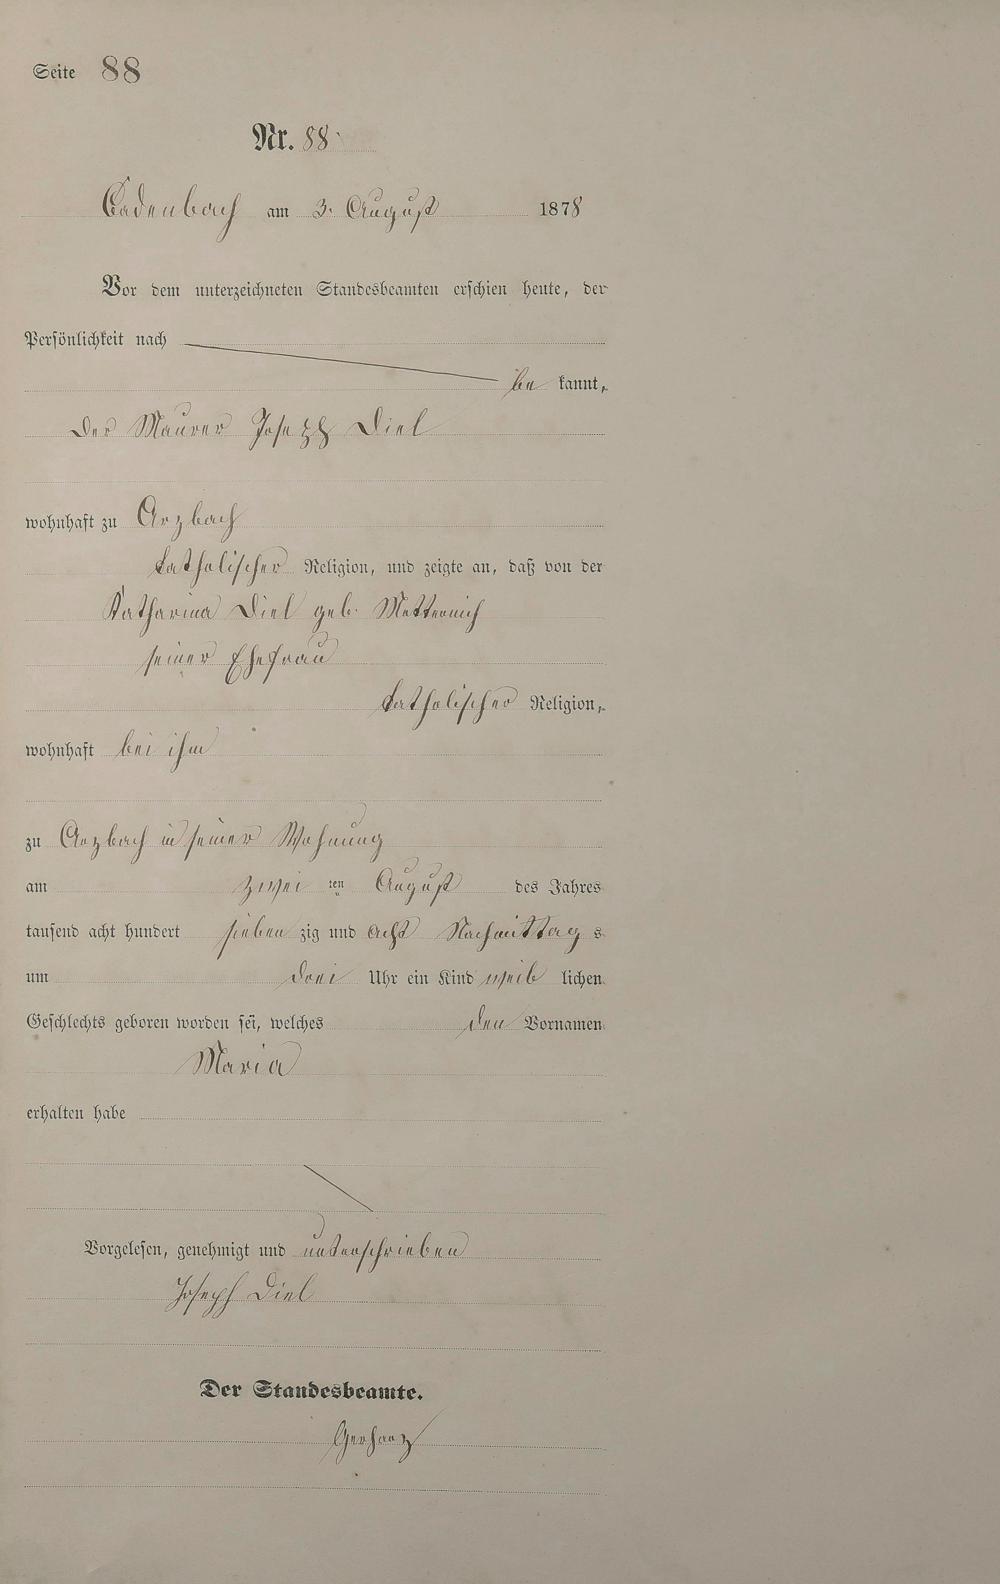 Seite 88
Nr. 88.
Cadenbach am 3. August 1878
Vor dem unterzeichneten Standesbeamten erschien heute, der
Persönlichkeit nach
be kannt,
Der Maurer Joseph Diel
wohnhaft zu Arzbach
katholischer Religion, und zeigte an, daß von der
Katharina Diel geb. Metternich
seiner Ehefrau
katholischer Religion,
wohnhaft bei ihm
zu Arzbach in seiner Wohnung
am zwei ten August des Jahres
tausend acht hundert sieben zig und acht Nachmittag s
um drei Uhr ein Kind weib lichen
Geschlechts geboren worden sei, welches den Vornamen
Maria
erhalten habe
Vorgelesen, genehmigt und unterschrieben
Joseph Diel
Der Standesbeamte.
Gerharz